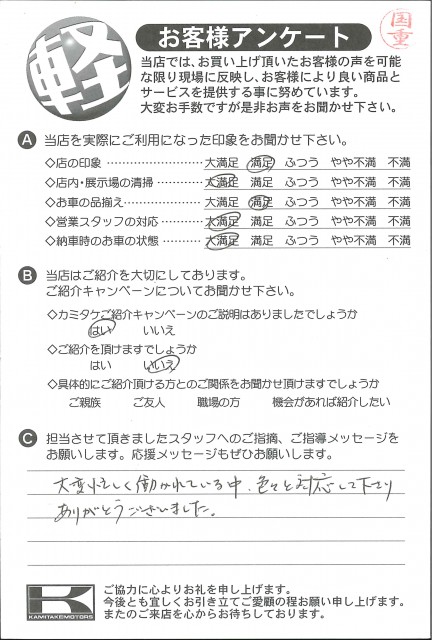 軽
お客様アンケート
国重
当店では、お買い上げ頂いたお客様の声を可能
な限り現場に反映し、お客様により良い商品と
サービスを提供する事に努めています。
大変お手数ですが是非お声をお聞かせ下さい。
A 当店を実際にご利用になった印象をお聞かせ下さい。
◇店の印象 …………………… 大満足 満足 ふつう やや不満 不満
◇店内・展示場の清掃 ………… 大満足 満足 ふつう やや不満 不満
◇お車の品揃え ………………… 大満足 満足 ふつう やや不満 不満
◇営業スタッフの対応 ………… 大満足 満足 ふつう やや不満 不満
◇納車時のお車の状態 ………… 大満足 満足 ふつう やや不満 不満
B 当店はご紹介を大切にしております。
ご紹介キャンペーンについてお聞かせ下さい。
◇カミタケご紹介キャンペーンのご説明はありましたでしょうか
はい いいえ
◇ご紹介を頂けますでしょうか
はい いいえ
◇具体的にご紹介頂ける方とのご関係をお聞かせ頂けますでしょうか
ご親族 ご友人 職場の方 機会があれば紹介したい
C 担当させて頂きましたスタッフへのご指摘、ご指導メッセージを
お願いします。応援メッセージもぜひお願いします。
大変忙しく働かれている中、色々と対応して下さり
ありがとうございました。
K
KAMITAKEMOTORS
ご協力に心よりお礼を申し上げます。
今後とも宜しくお引き立てご愛顧の程お願い申し上げます。
またのご来店を心からお待ちしております。